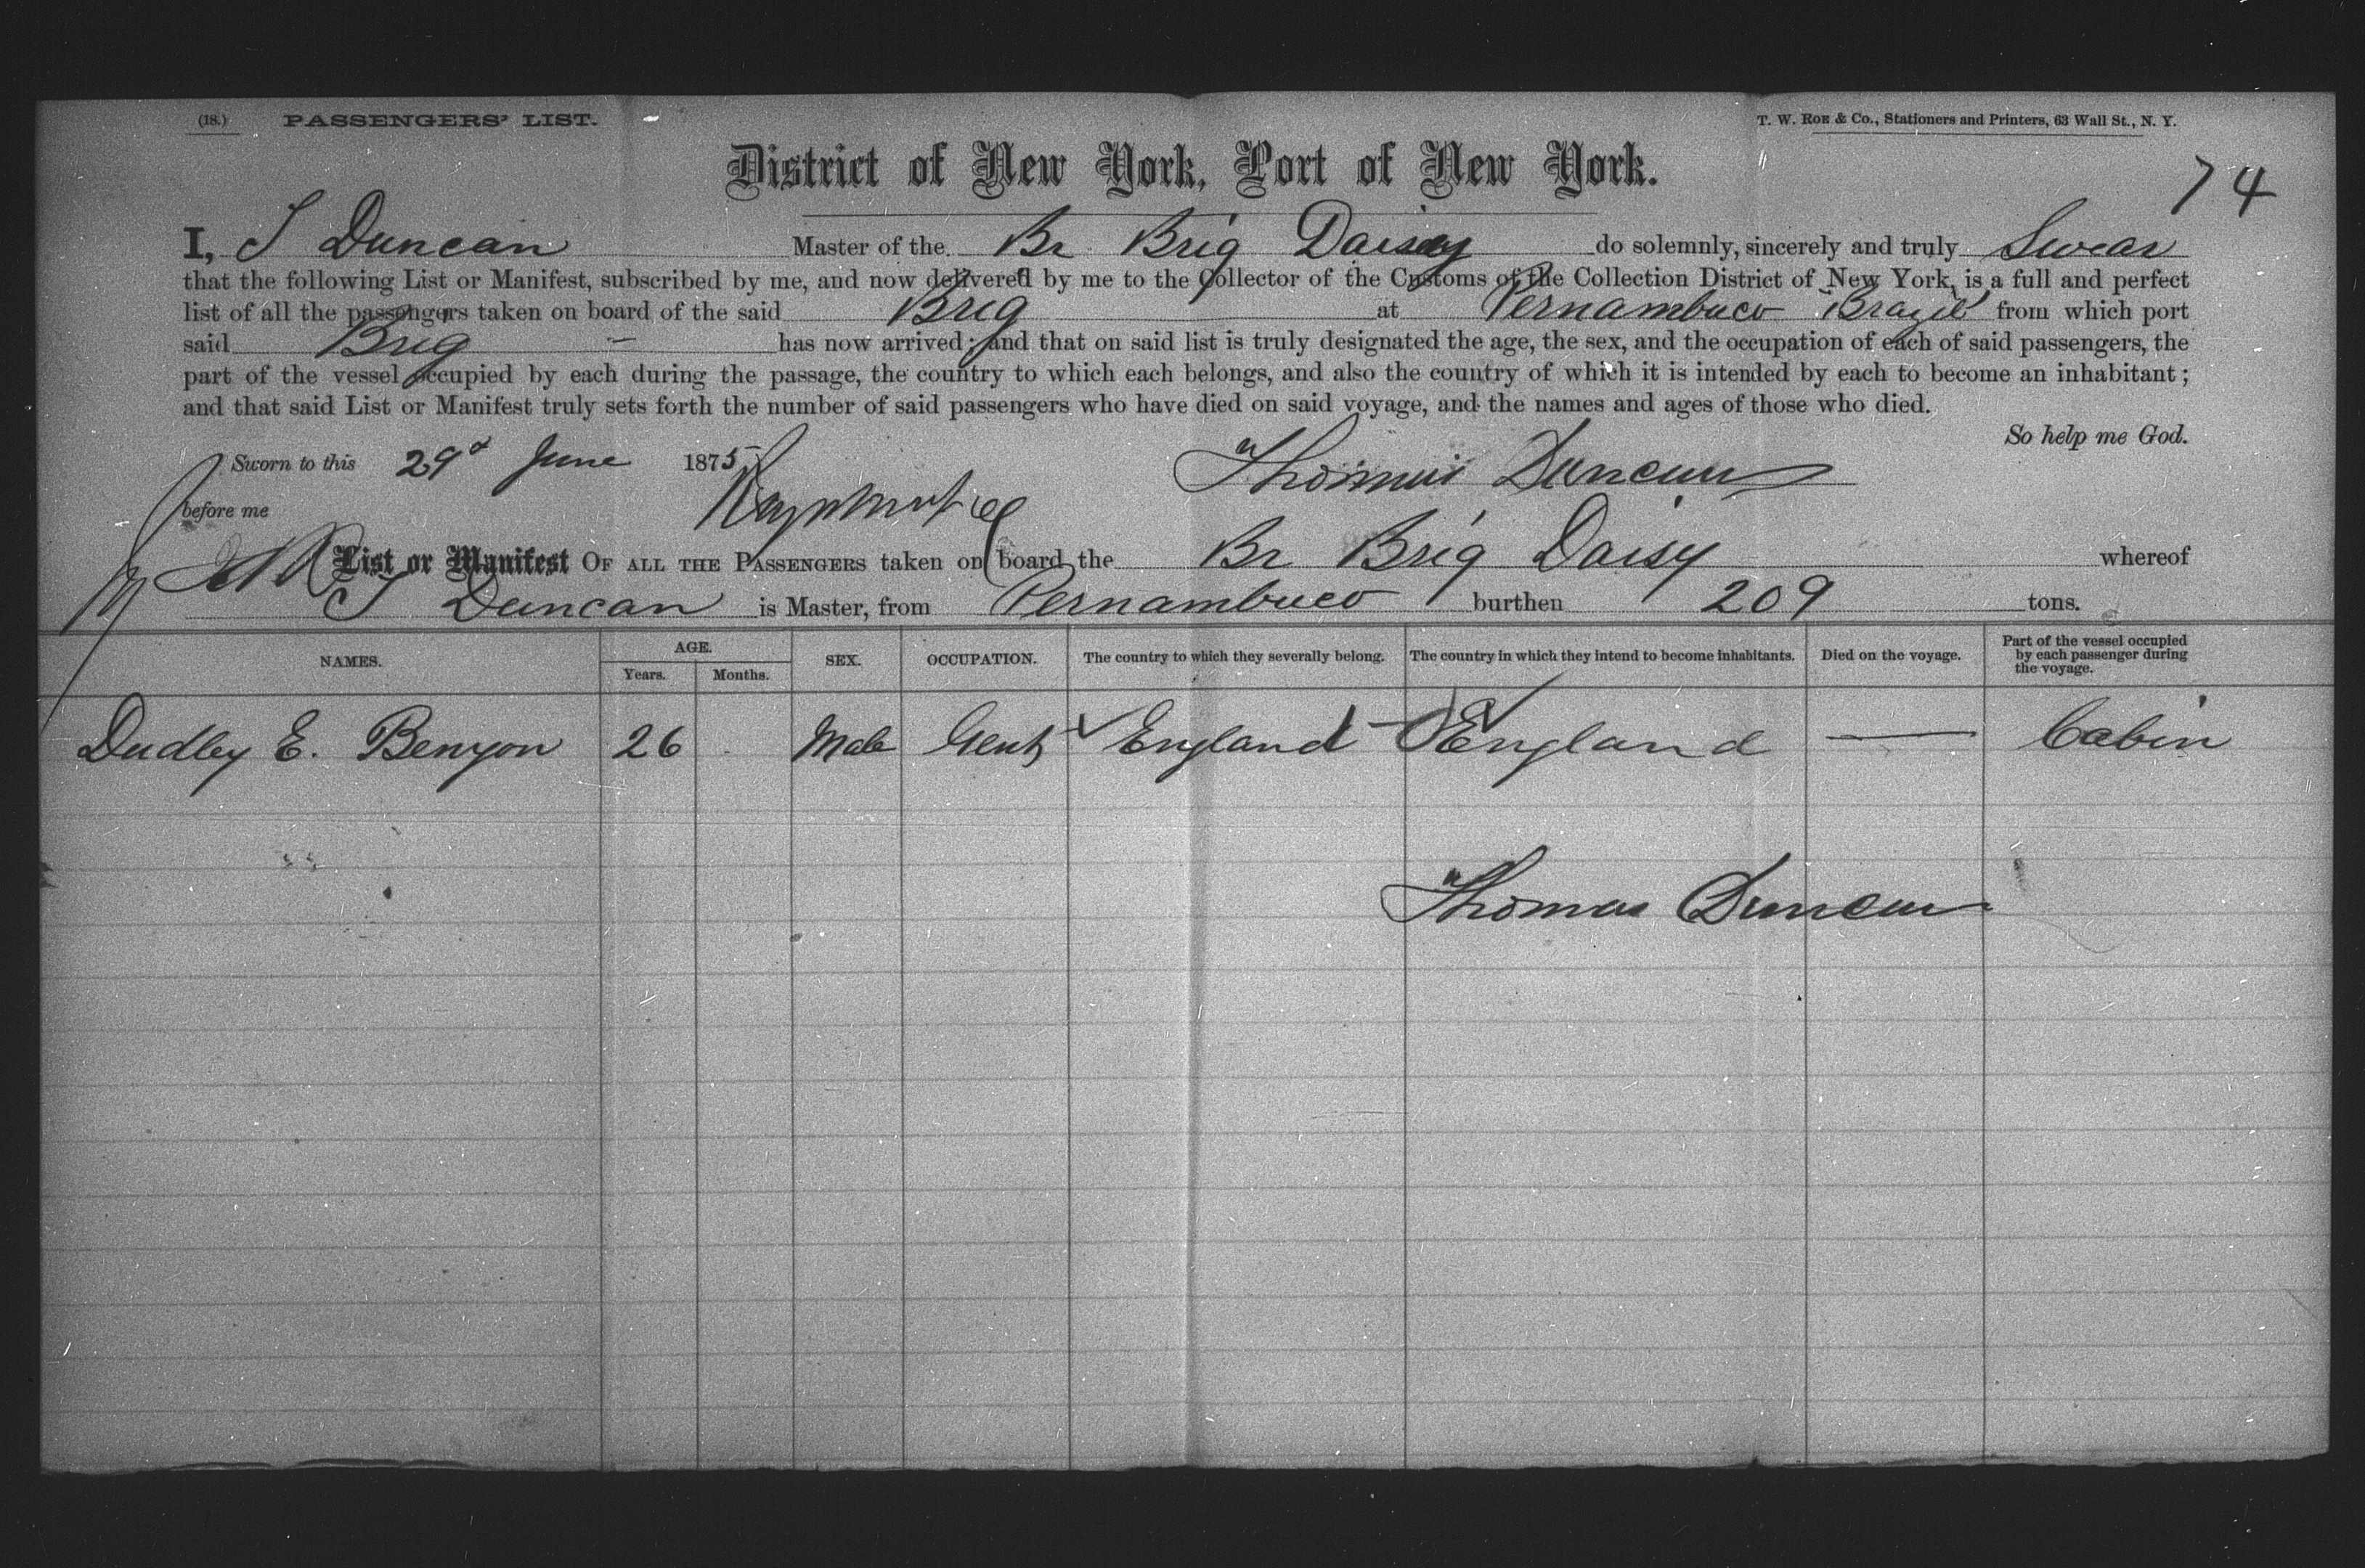 (18.) PASSENGERS' LIST.
T. W. Roe & Co., Stationers and Printers, 63 Wall St., N. Y.
District of New York, Port of New York.
74
I, T Duncan Master of the Br Brig Daisy do solemnly, sincerely and truly Swear
that the following List or Manifest, subscribed by me, and now delivered by me to the Collector of the Customs of the Collection District of New York, is a full and perfect
list of all the passengers taken on board of the said Brig at Pernambuco Brazil from which port
said Brig has now arrived; and that on said list is truly designated the age, the sex, and the occupation of each of said passengers, the
part of the vessel occupied by each during the passage, the country to which each belongs, and also the country of which it is intended by each to become an inhabitant;
and that said List or Manifest truly sets forth the number of said passengers who have died on said voyage, and the names and ages of those who died.
So help me God.
Sworn to this 29 June 1875 Thomas Duncan
before me
List or Manifest OF ALL THE PASSENGERS taken on board the Br Brig Daisy whereof
T Duncan is Master, from Pernambuco burthen 209 tons.
NAMES. AGE. Years. Months. SEX. OCCUPATION. The country to which they severally belong. The country in which they intend to become inhabitants. Died on the voyage. Part of the vessel occupied by each passenger during the voyage.
Dudley E. Benyon 26 Male Gent England England — Cabin
Thomas Duncan